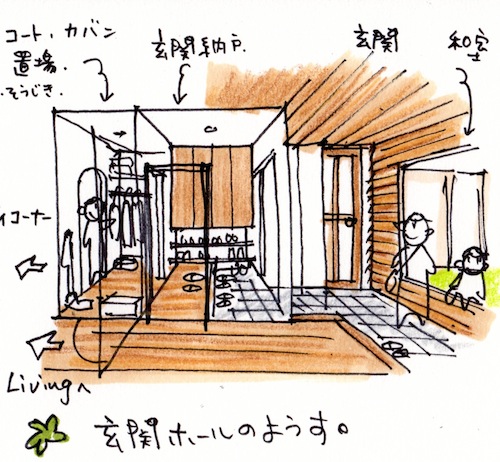 コート、カバン
置場.
.そうじき.
玄関納戸.
玄関
和室
ィコーナー
Livingへ
玄関ホールのようす。